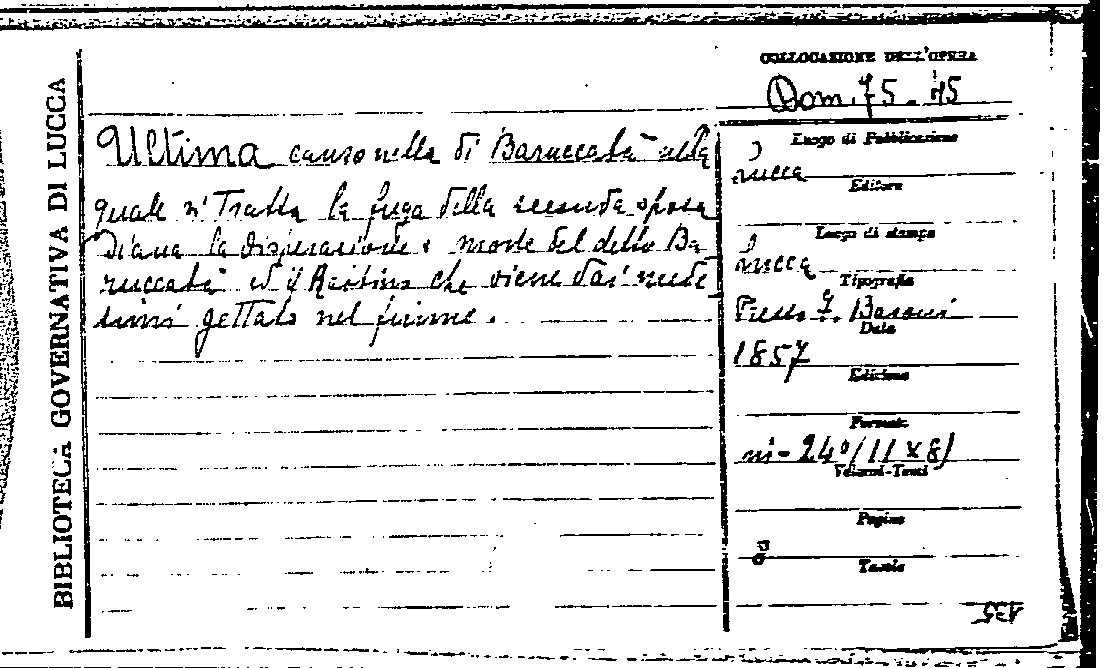 BIBLIOTECA GOVERNATIVA DI LUCCA
COLLOCAZIONE DELL'OPERA
Dom. 75. 45
Ultima canzonella di Baruccabà nella
quale si Tratta la fuga della seconda sposa
Diana la disperazione e morte del detto Ba
ruccabà ed il che viene dai
gettato nel fiume.
Luogo di Pubblicazione
Lucca
Editore
Luogo di stampa
Lucca
Tipografia
Presso F. Baroni
Data
1857
Edizione
Formato
in-24°/11x8/
Volumi-Tomi
Pagine
8
Tavole